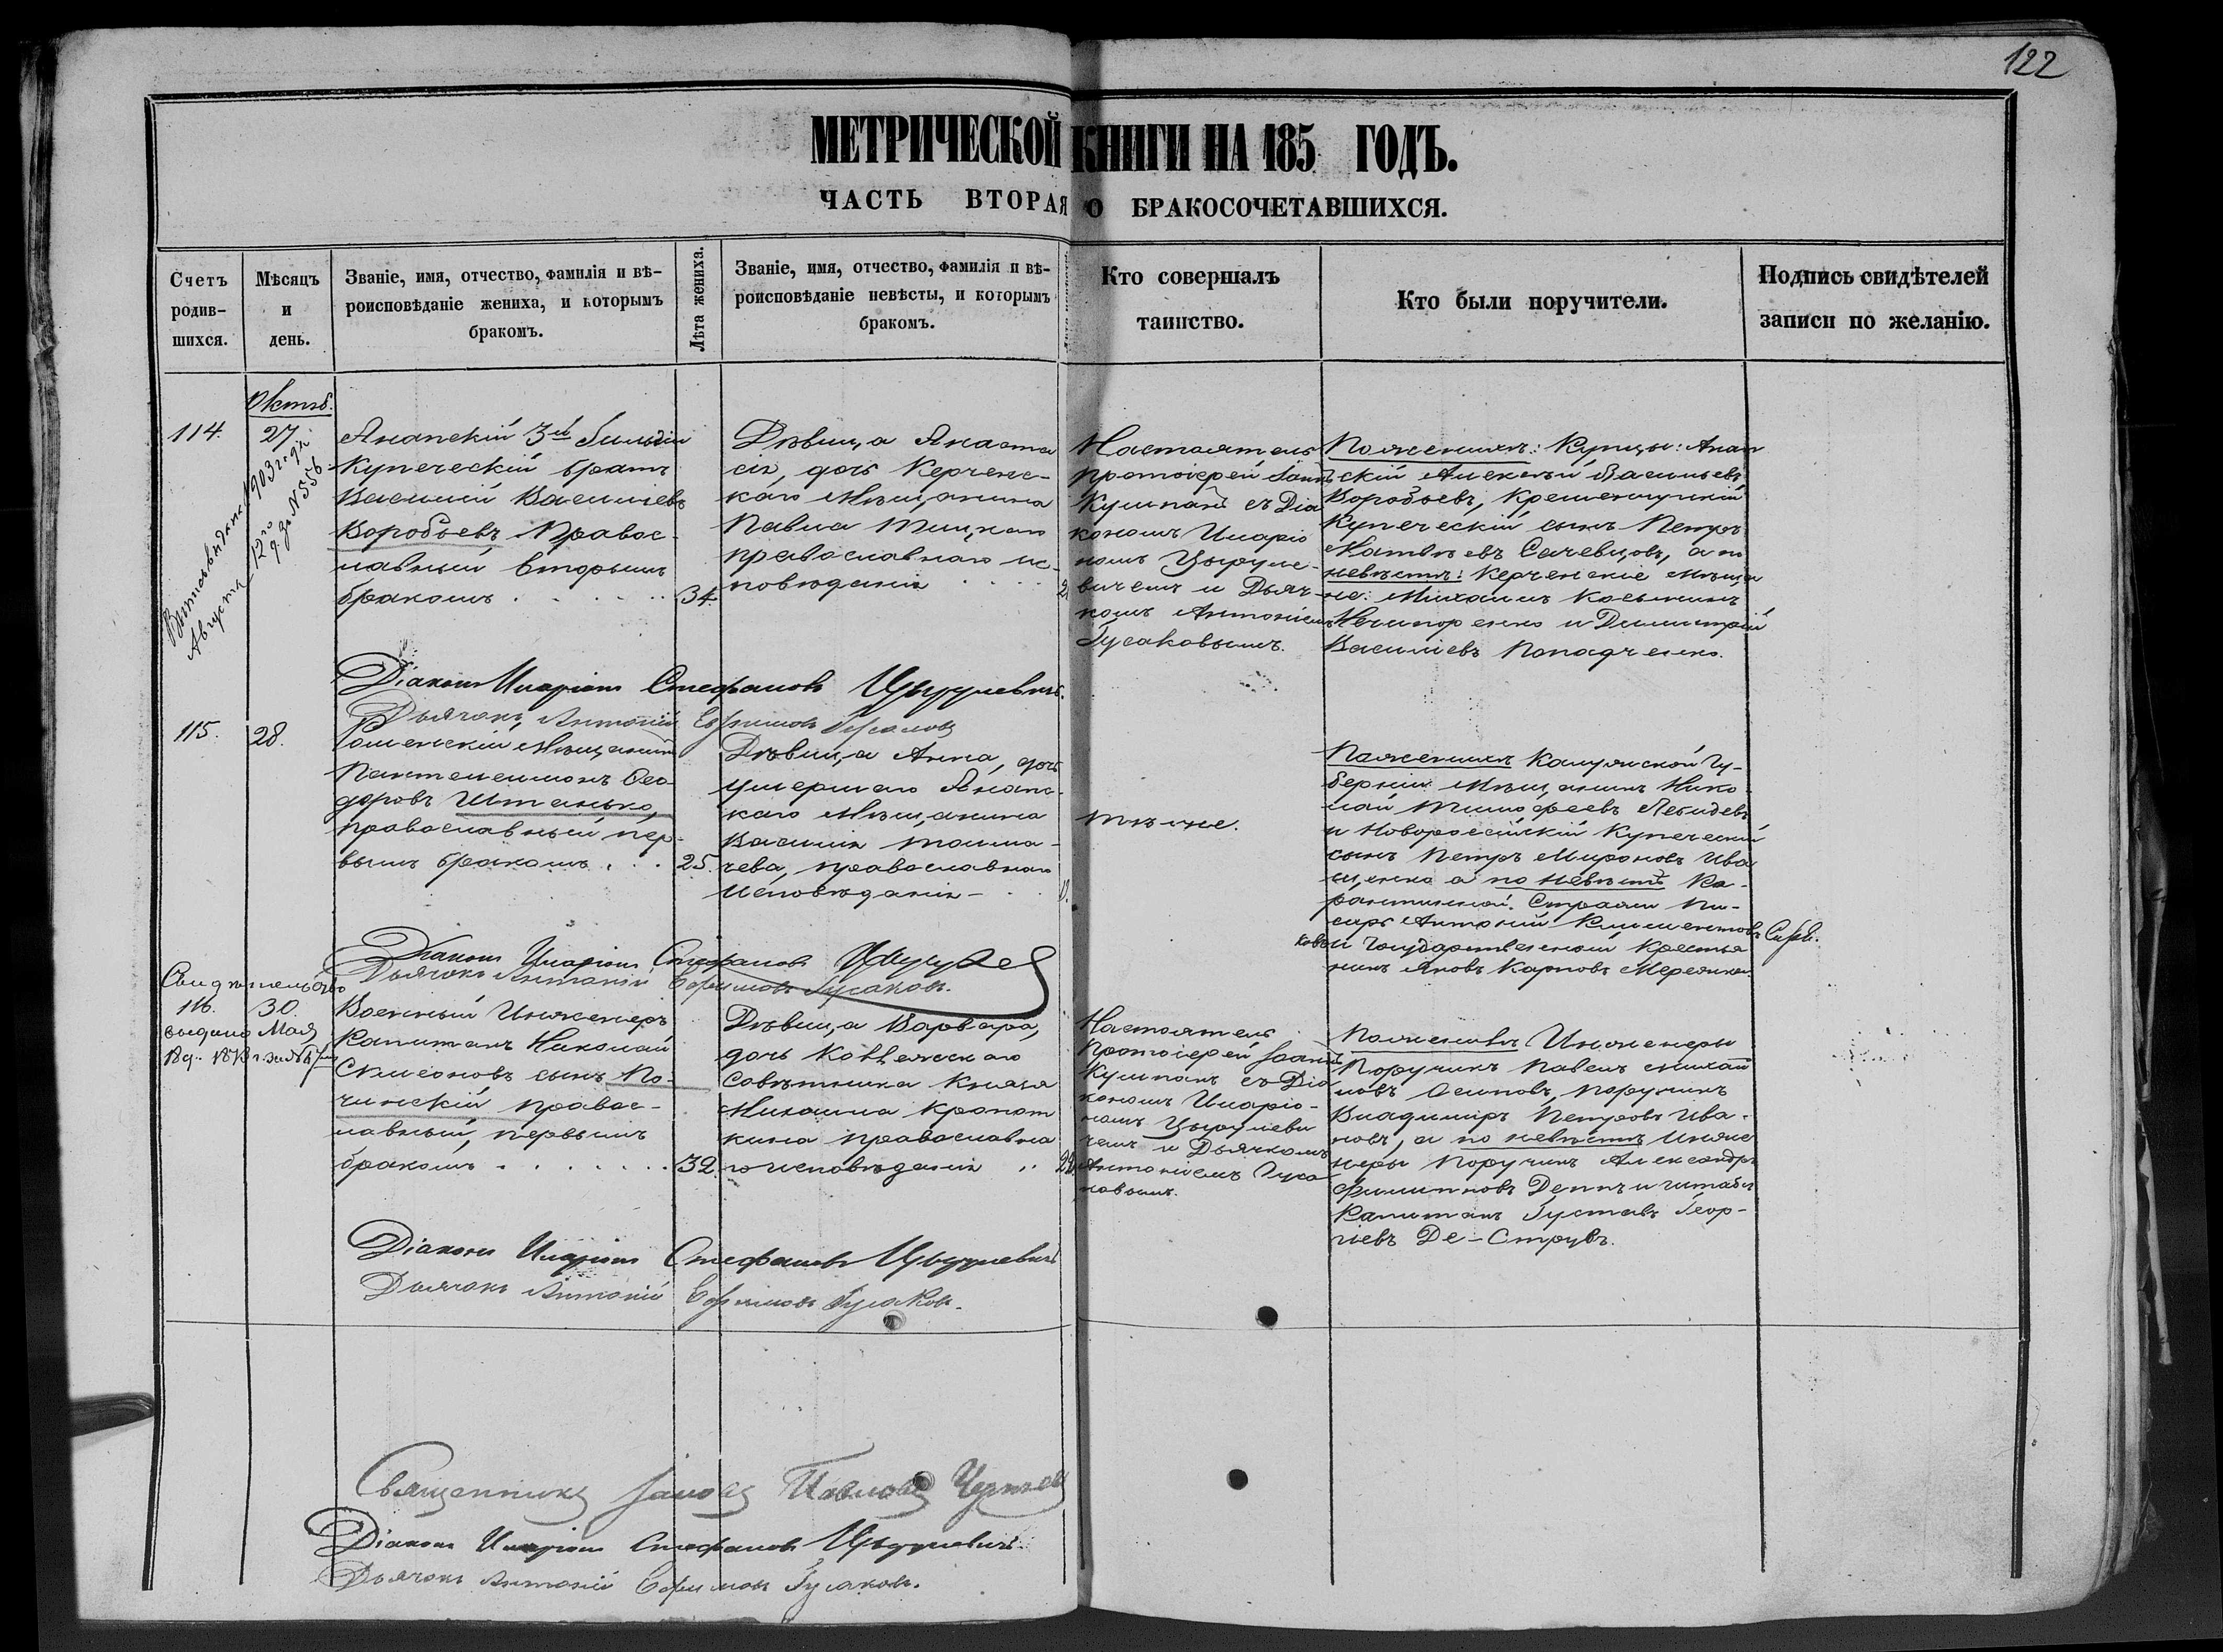 122
МЕТРИЧЕСКОЙ КНИГИ НА 185 ГОДЪ.
ЧАСТЬ ВТОРАЯ О БРАКОСОЧЕТАВШИХСЯ.
Счетъ
родив-
шихся.
Мѣсяцъ
и
день.
Званіе, имя, отчество, фамилія и вѣ-
роисповѣданіе жениха, и которымъ
бракомъ.
Лѣта жениха.
Званіе, имя, отчество, фамилія и вѣ-
роисповѣданіе невѣсты, и которымъ
бракомъ.
Кто совершалъ
таинство.
Кто были поручители.
Подпись свидѣтелей
записи по желанію.
Октяб.
114.
27
Выпись выдана 1903 года
Августа 12го д. за № 556
Анапскій 3й Гильдіи
Купеческій братъ
Василій Васильевъ
Воробьевъ Правос-
лавный вторымъ
бракомъ
34.
Дѣвица Анаста
сія, дочь Керченс-
каго Мѣщанина
Павла
православнаго ис-
повѣданія
Настоятель
Протоіерей Іоаннъ
Кумпанъ съ Діа
кономъ Иларіо
номъ Цыруле-
вичемъ и Дьяч-
комъ Антоніемъ
Гусаковымъ.
По женихѣ: Купцы: Анап
скій Алексѣй Васильевъ
Воробьевъ, Кременчугскій
Купеческій сынъ Петръ
Матвѣевъ а по
невѣстѣ: Керченскіе Мѣща
не: Михаилъ Косьминъ
Нечипоренко и Димитрій
Васильевъ Попадченко.
Діаконъ Иларіонъ Стефановъ Цырулевичъ.
Дьячокъ Антоній Ефимовъ Гусаковъ
115.
28.
Роменскій Мѣщанинъ
Пантелеимонъ Ѳео-
доровъ Штанько,
православный пер-
вымъ бракомъ
25.
Дѣвица Анна, дочь
умершаго Анапс-
каго Мѣщанина
Василія Толма-
чева, православнаго
исповѣданія
Тѣ же.
По женихѣ Калужской Гу-
берніи Мѣщанинъ Нико
лай Тимофеевъ Лебидевъ
и Новоросійскій Купеческій
сынъ Петръ Мироновъ Ива
щенко а по невѣстѣ Ка-
рантинной Стражи Пи-
сарь Антоній Климентовъ
и Государственный Крестья
нинъ Яковъ Карповъ
Діаконъ Иларіонъ Стефановъ
Дьячокъ Антоній Ефимовъ Гусаковъ.
Свидѣтельство
116.
30.
выдано Мая
18 д. 1873 г. за №
Военный Инженеръ
Капитанъ Николай
Симеоновъ сынъ По-
чинскій правос-
лавный, первымъ
бракомъ
32.
Дѣвица Варвара,
дочь Коллежскаго
Совѣтника Князя
Михаила Крапот
кина православна
го исповѣданія
Настоятель
Протоіерей Іоаннъ
Кумпанъ съ Діа
кономъ Иларіо-
номъ Цырулеви
чемъ и Дьячкомъ
Антоніемъ Гуса
ковымъ.
По женихѣ Инженеры
Поручикъ Павелъ Михай
ловъ Осиповъ, поручикъ
Владимиръ Петровъ Ива-
новъ, а по невѣстѣ Инже
неры Поручикъ Александръ
Филипповъ Деппъ и штабсъ
Капитанъ Густавъ Геор-
гіевъ Де-Струвъ.
Діаконъ Иларіонъ Стефановъ Цырулевичъ
Дьячокъ Антоній Ефимовъ Гусаковъ.
Священникъ Іаковъ Павловъ
Діаконъ Иларіонъ Стефановъ Цырулевичъ
Дьячокъ Антоній Ефимовъ Гусаковъ.